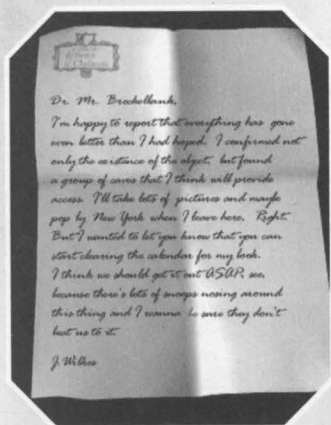 Dr. Mr. Brockelbank,
I'm happy to report that everything has gone
even better than I had hoped. I confirmed not
only the existance of the object, but found
a group of caves that I think will provide
access. I'll take lots of pictures and maybe
pop by New York when I leave here. Right.
But I wanted to let you know that you can
start clearing the calendar for my book.
I think we should get it out ASAP, see,
because there's lots of snoops nosing around
this thing and I wanna be sure they don't
beat us to it.
J. Wilkes